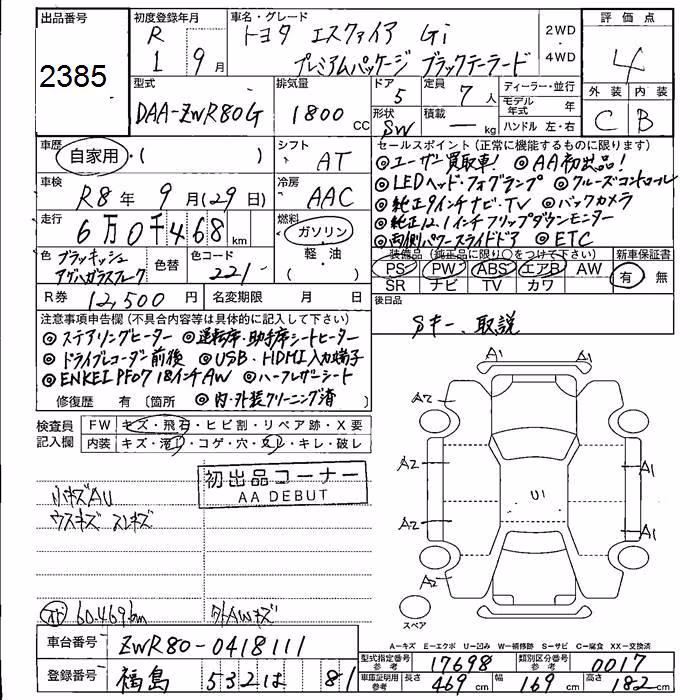 出品番号
2385
初度登録年月
R
1 9月
車名・グレード
トヨタ エスクァイア Gi
プレミアムパッケージ ブラックテーラード
2WD
・
4WD
評価点
4
外装 内装
C B
型式
DAA-ZWR80G
排気量
1800cc
ドア
5
形状
SW
定員
7人
積載
—kg
ディーラー・並行
モデル年式 年
ハンドル 左・右
車歴
自家用・( )
シフト
AT
車検
R8年9月(29日)
冷房
AAC
走行
6万0千468km
燃料
ガソリン
軽・油
( )
色
ブラッキッシュ
アゲハガラスフレーク
色替
色コード
221
R券 12,500円
名変期限 月 日
セールスポイント (正常に機能するものに限ります)
◎ユーザー買取車! ◎AA初出品!
◎LEDヘッド・フォグランプ ◎クルーズコントロール
◎純正9インチナビ・TV ◎バックカメラ
◎純正12.1インチフリップダウンモニター
◎両側パワースライドドア ◎ETC
装備品 (純正品に限り○をつけて下さい)
新車保証書
PS PW ABS エアB AW
SR ナビ TV カワ
有 無
後日品
Sキー、取説
注意事項申告欄 (不具合内容等は具体的に記入して下さい)
◎ステアリングヒーター ◎運転席・助手席シートヒーター
◎ドライブレコーダー前後 ◎USB・HDMI入力端子
◎ENKEI PF07 18インチAW ◎ハーフレザーシート
◎内・外装クリーニング済
修復歴 有 (箇所
検査員
記入欄
FW キズ・飛石・ヒビ割・リペア跡・X要
内装 キズ・汚れ・コゲ・穴・スレ・キレ・破レ
初出品コーナー
AA DEBUT
小キズAU
ウスキズ スレキズ
60.469km
外AWキズ
A1 A1
A2
A2 A1
U1
A2 A1
A2
スペア
A=キズ E=エクボ U=凹み W=補修跡 S=サビ C=腐食 XX=交換済
車台番号 ZWR80-0418111
登録番号 福島 532 は 81
型式指定番号
参考
17698
類別区分番号
参考
0017
車庫証明用
参考
長さ 469cm 幅 169cm 高さ 182cm